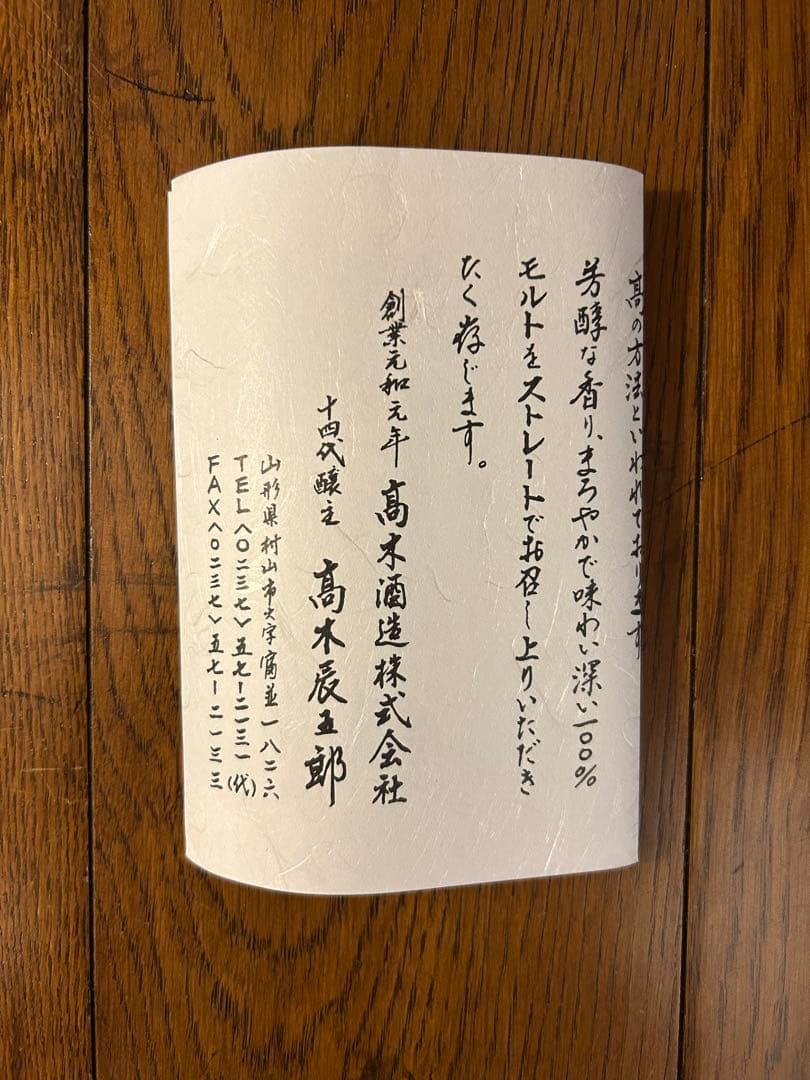 高の方法といわれております
芳醇な香り、まろやかで味わい深い一〇〇%
モルトをストレートでお召し上りいただき
たく存じます。
創業元和元年 高木酒造株式会社
十四代醸主 高木辰五郎
山形県村山市大字富並一八二六
TEL〈〇二三七〉五七ー二一三一(代)
FAX〈〇二三七〉五七ー二一三三